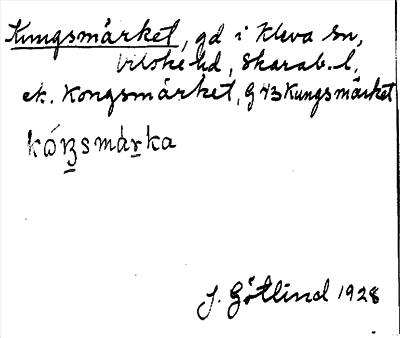 Kungsmärket, gd i Kleva sn,
Vilske hd, Skarab. l,
ek. Kongsmärket, G 43 Kungsmärket
kóŋsmárka
J. Götlind 1928